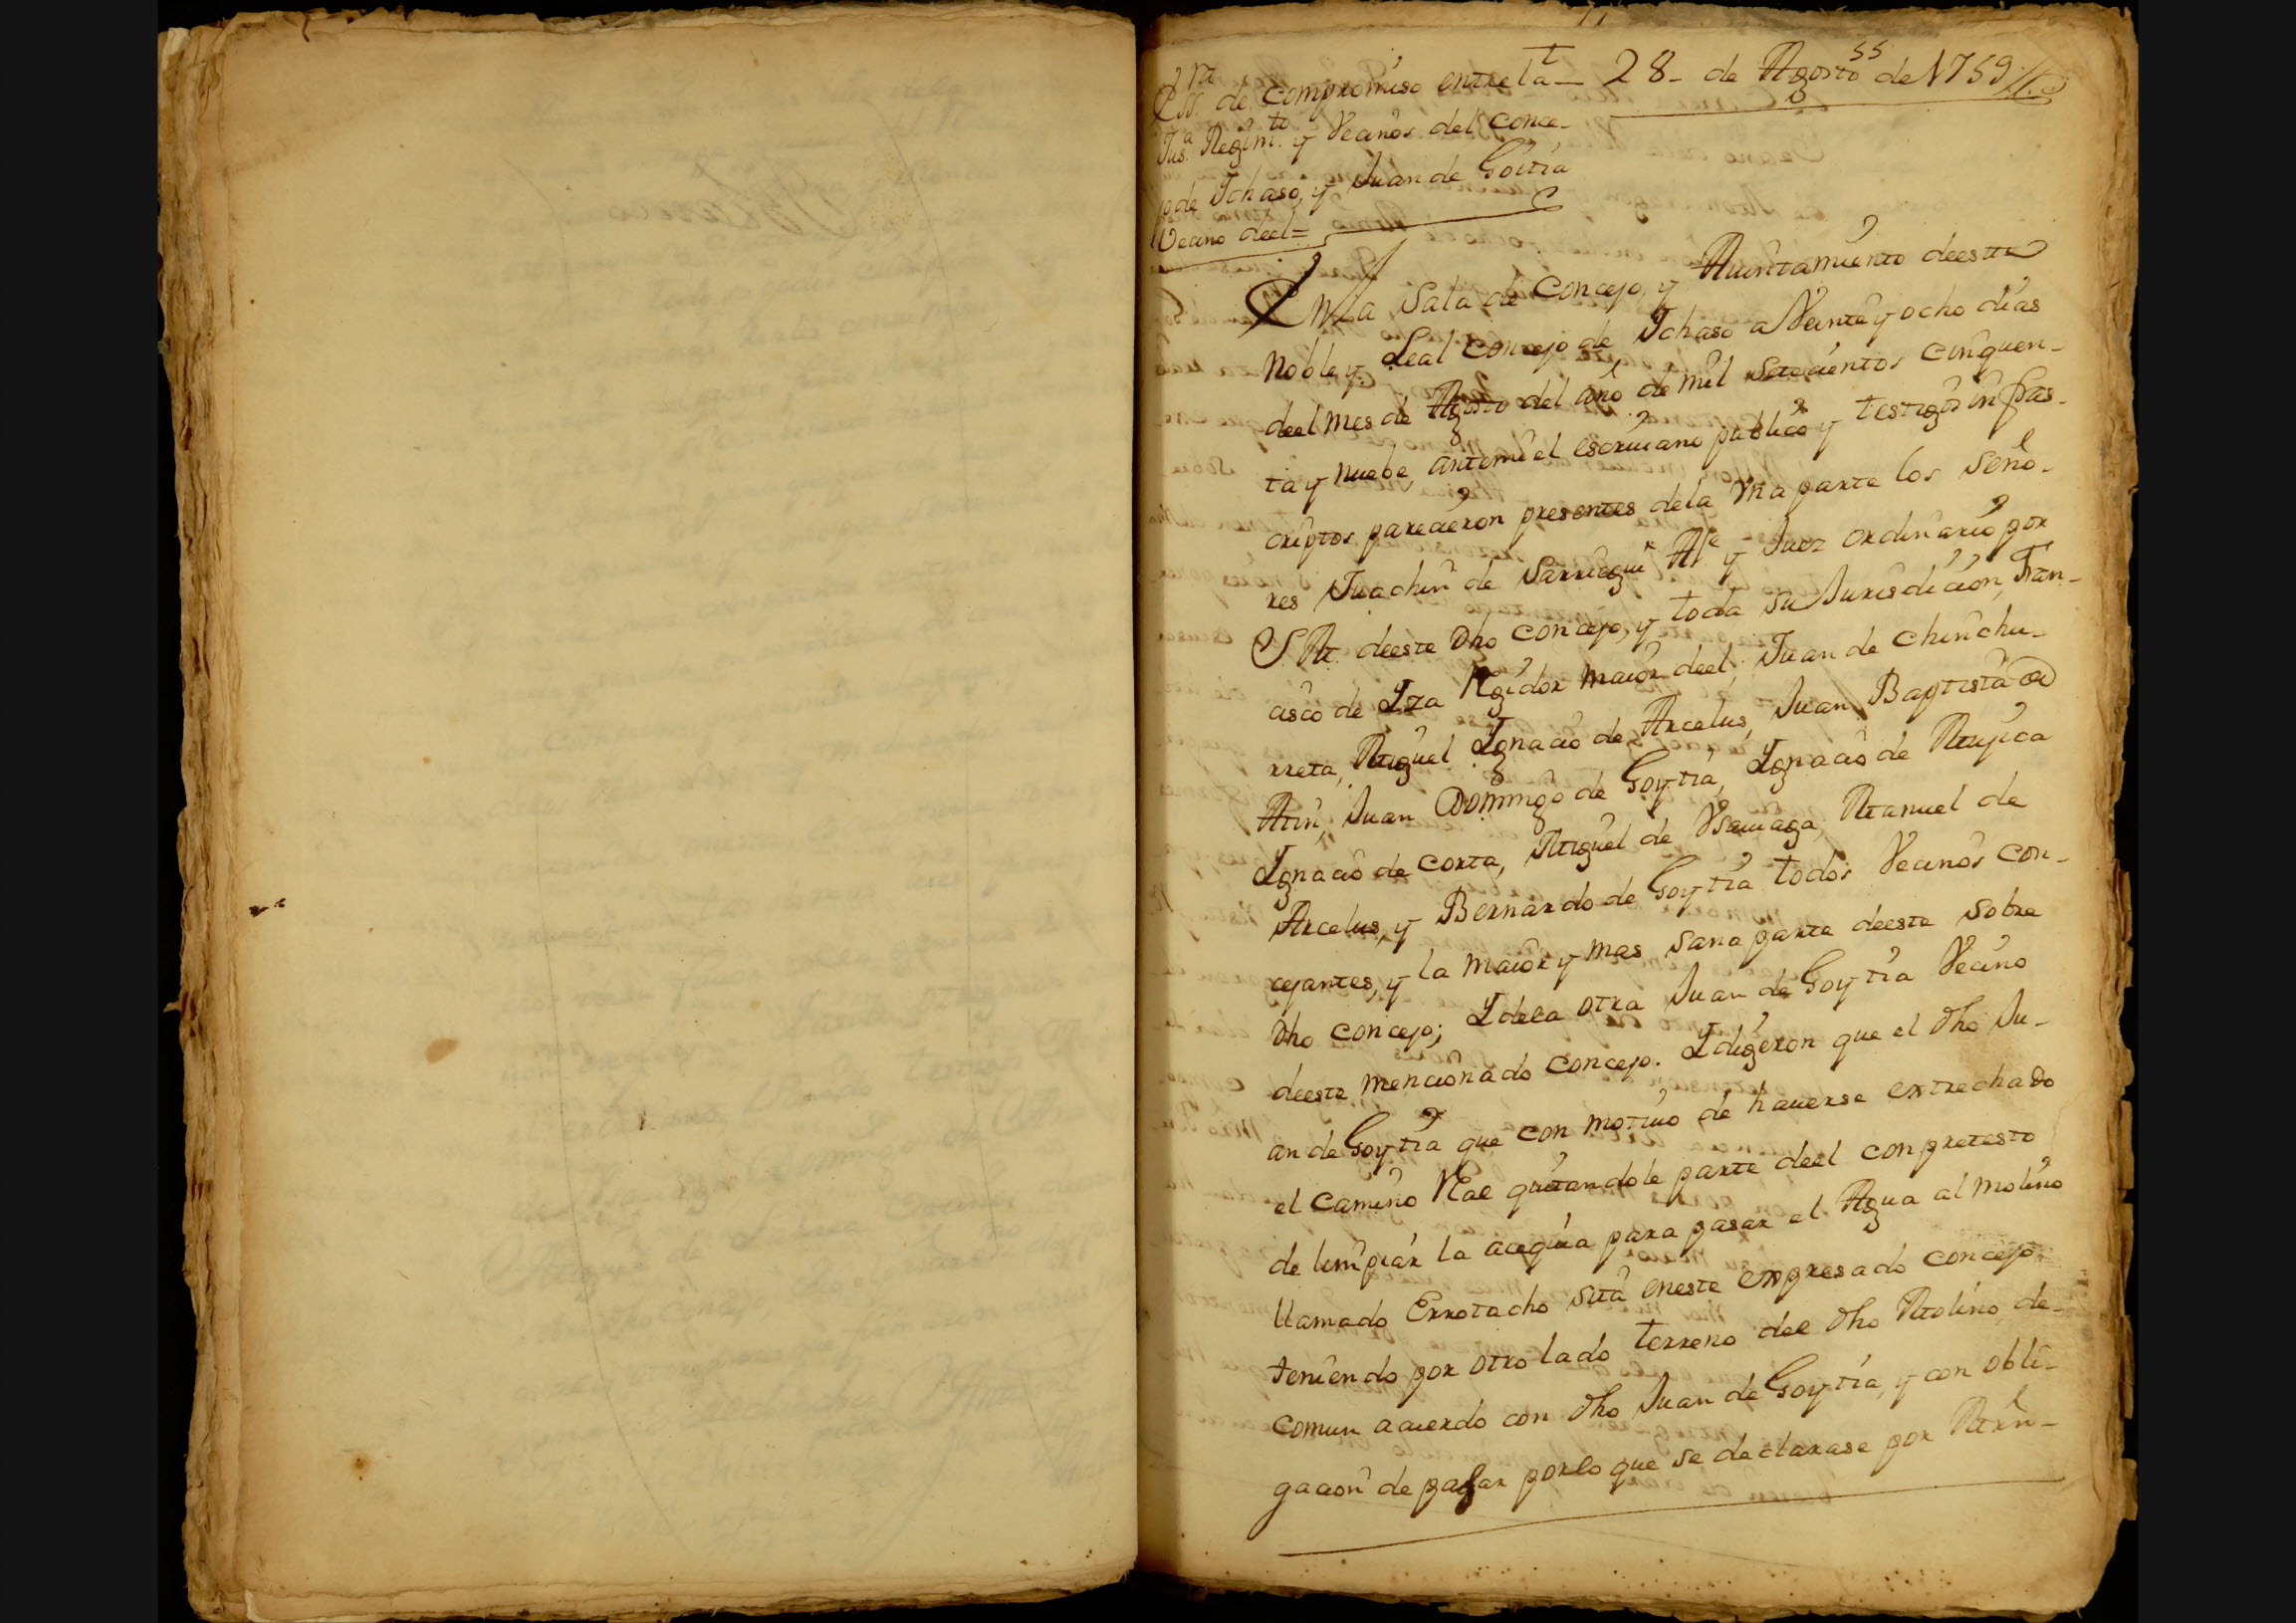 Essra de compromiso entre la
Jusa Regimto y Vecinos del Conce-
jo de Ichaso, y Juan de Goitia
Vecino deel =
28 - de Agosto de 1759
55
En la Sala de Concejo, y Aiuntamiento deeste
Noble y Leal Concejo de Ichaso a Veinte y ocho dias
deel mes de Agosto del año de mil setecientos cinquen-
ta y nuebe, antemi el escriuano publico y testigos infras-
criptos parecieron presentes dela Vna parte los Seño-
res Juachin de Sarriegui Alc y Juez ordinario por
S M. deeste Dho Concejo, y toda su Jurisdicion, Fran-
cisco de Yza Rgidor maior deel, Juan de Chinchu-
rreta, Miguel Ygnacio de Arcelus, Juan Baptista de
Juan Domingo de Goytia, Ygnacio de Mujica
Ygnacio de Corta, Miguel de Vsauiaga, Manuel de
Arcelus, y Bernardo de Goytia todos Vecinos con-
cejantes, y la maior y mas sana parte deeste sobre
Dho Concejo; Y dela otra Juan de Goytia Vecino
deeste mencionado Concejo. Y digeron que el dho Ju-
an de Goytia que con motiuo de hauerse extrechado
el Camino Rl quitandole parte deel con pretesto
de limpiar la acequia para pasar el Agua al molino
llamado Errotacho sitù eneste expresado Concejo
teniendo por otro lado terreno del dho Molino, de-
comun acuerdo con dho Juan de Goytia, y con obli-
gacion de pasar por lo que se declarase por Mrn-